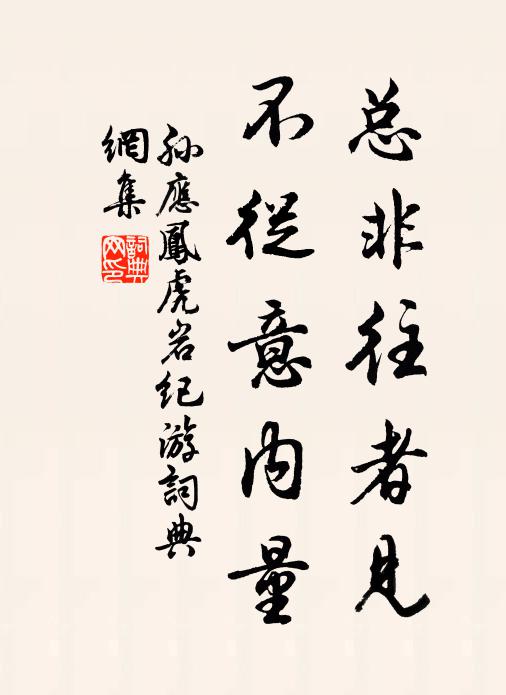 总非往者見
不從意內量
孫應鳳虎岩紀游詞典
網集
詞典
网印